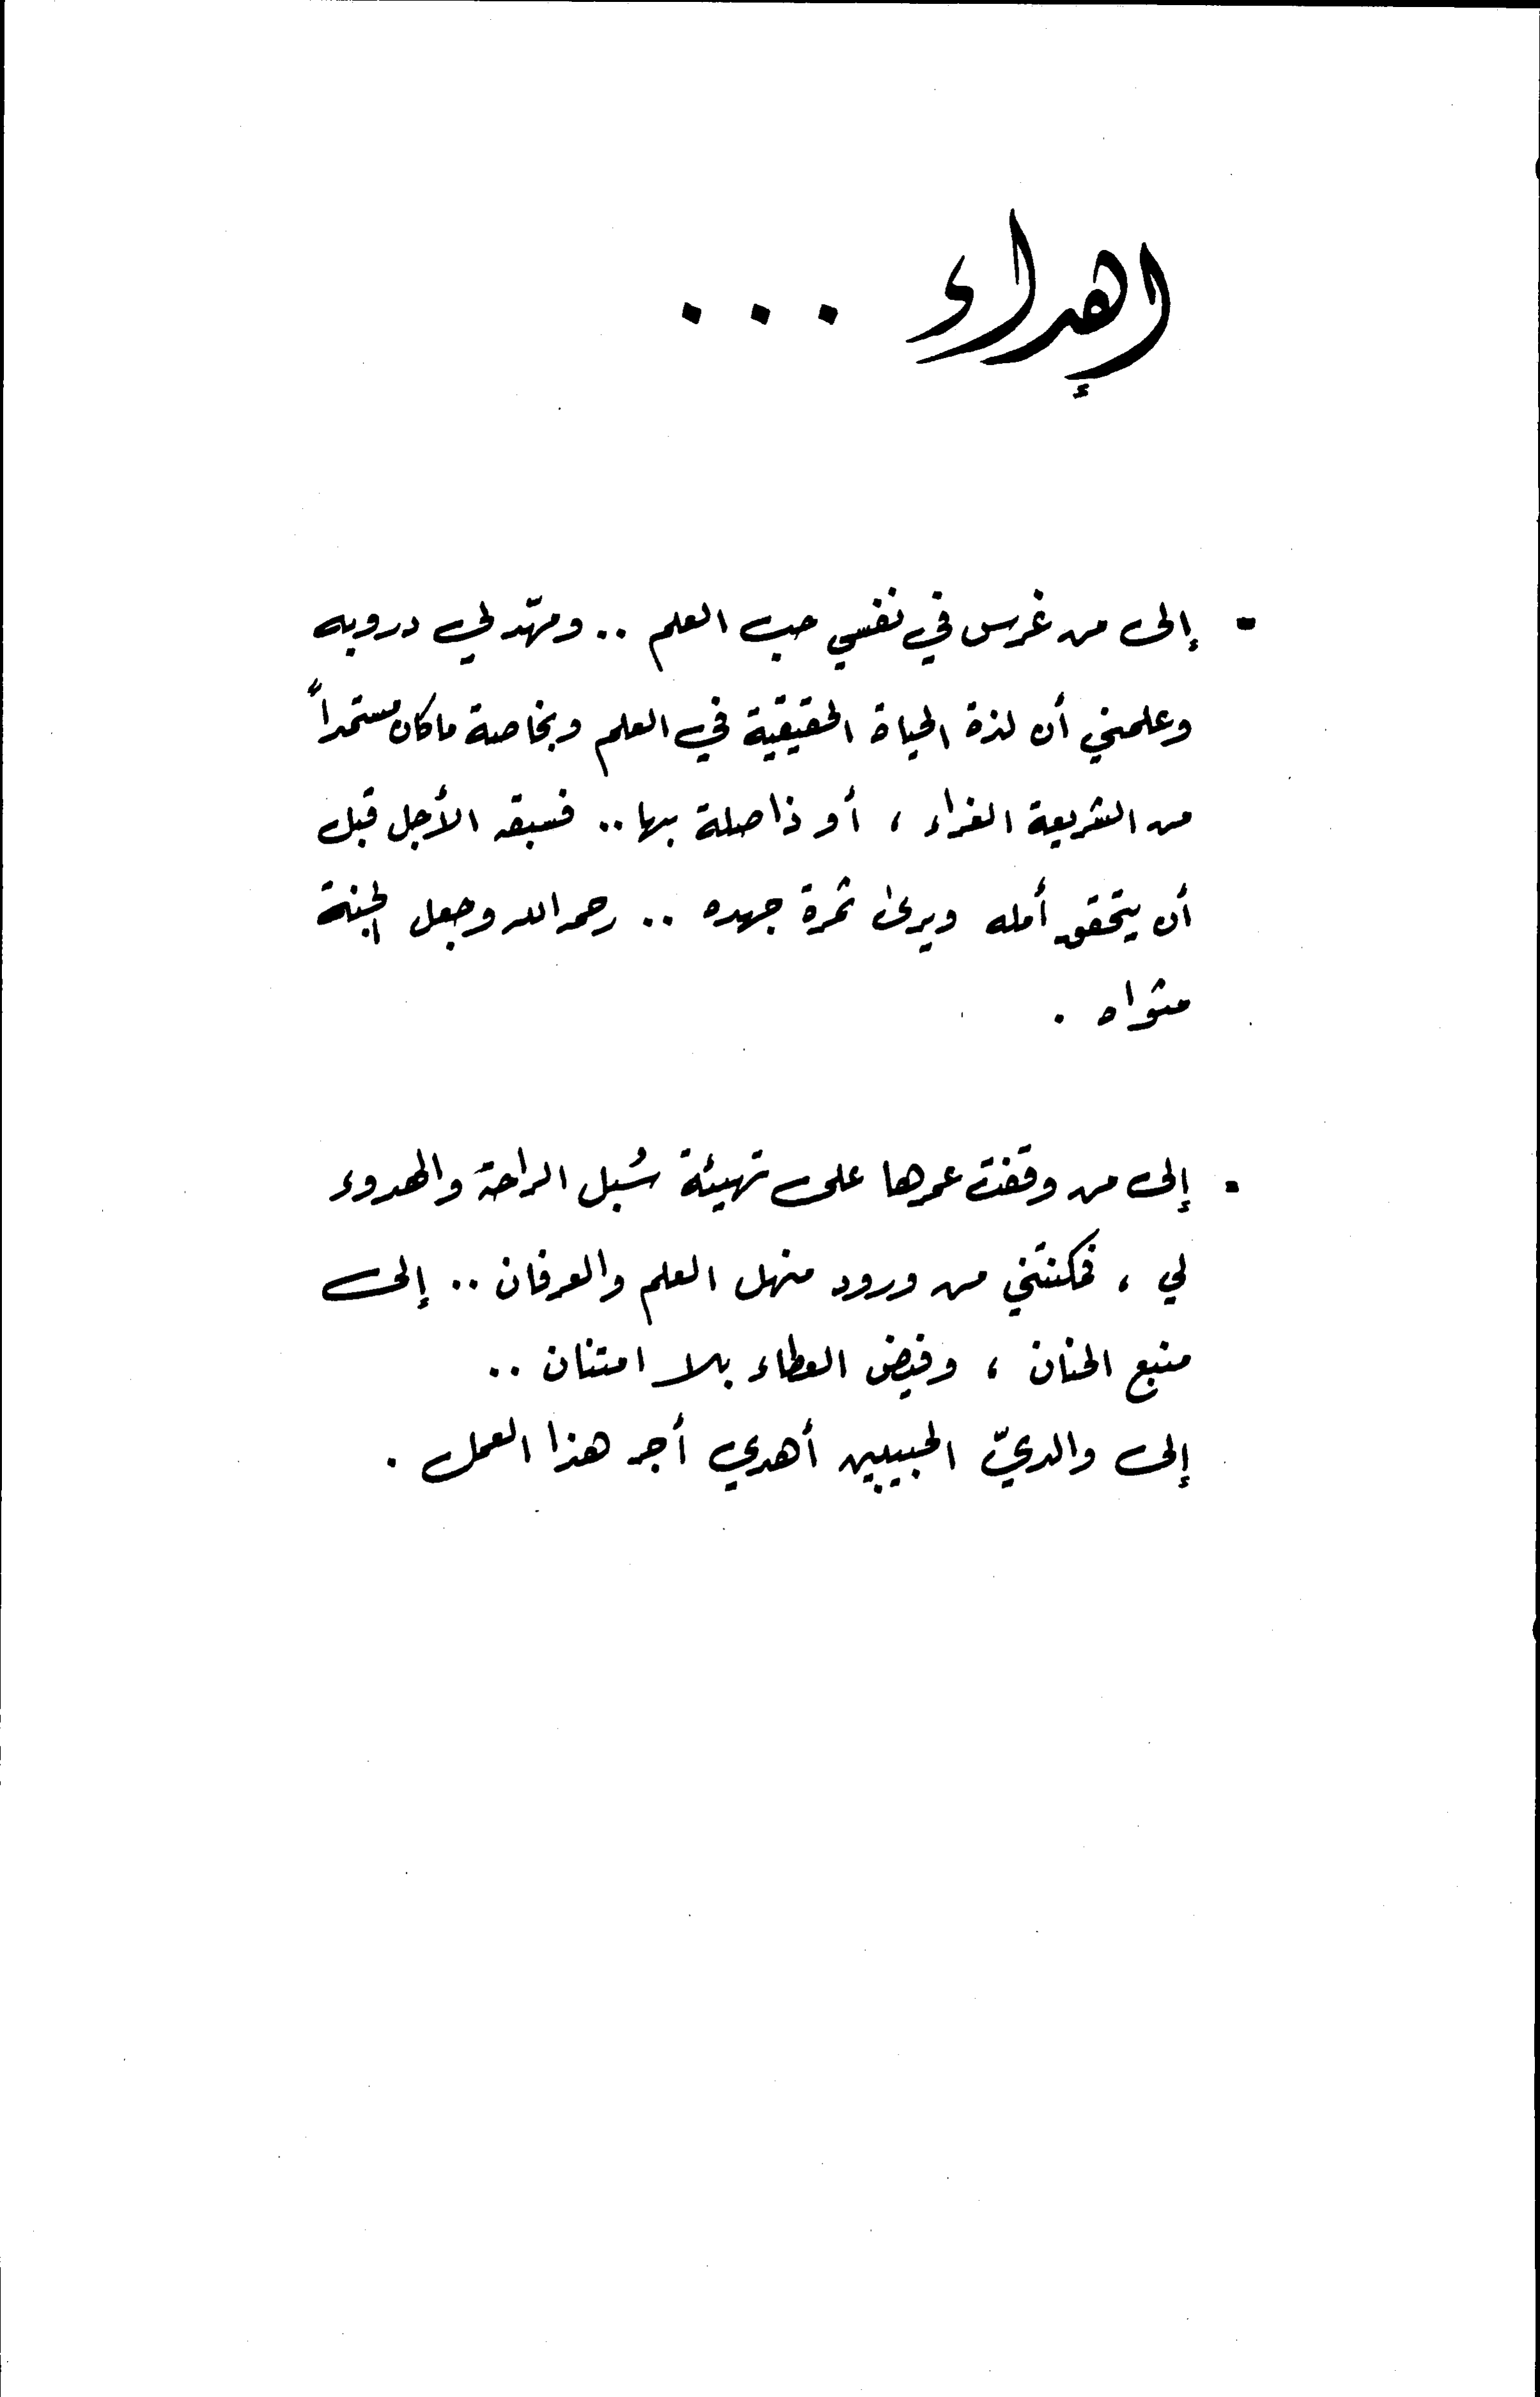 إهداء ...
- إلى من غرس في نفسي حب العلم .. ومهّد لي دروبه
وعلمني أن لذة الحياة الحقيقية في العلم وبخاصة ما كان مستمداً
من الشريعة الغراء ، أو ذا صلة بها .. فسبقه الأجل قبل
أن يتحقق أمله ويرى ثمرة جهده .. رحمه الله وجعل الجنة
مثواه .
- إلى من وقفت عمرها على تهيئة سُبل الراحة والهدوء
لي ، فمكنتني من ورود منهل العلم والعرفان .. إلى
منبع الحنان ، وفيض العطاء بلا امتنان ..
إلى والديّ الحبيبين أهدي أجر هذا العمل .